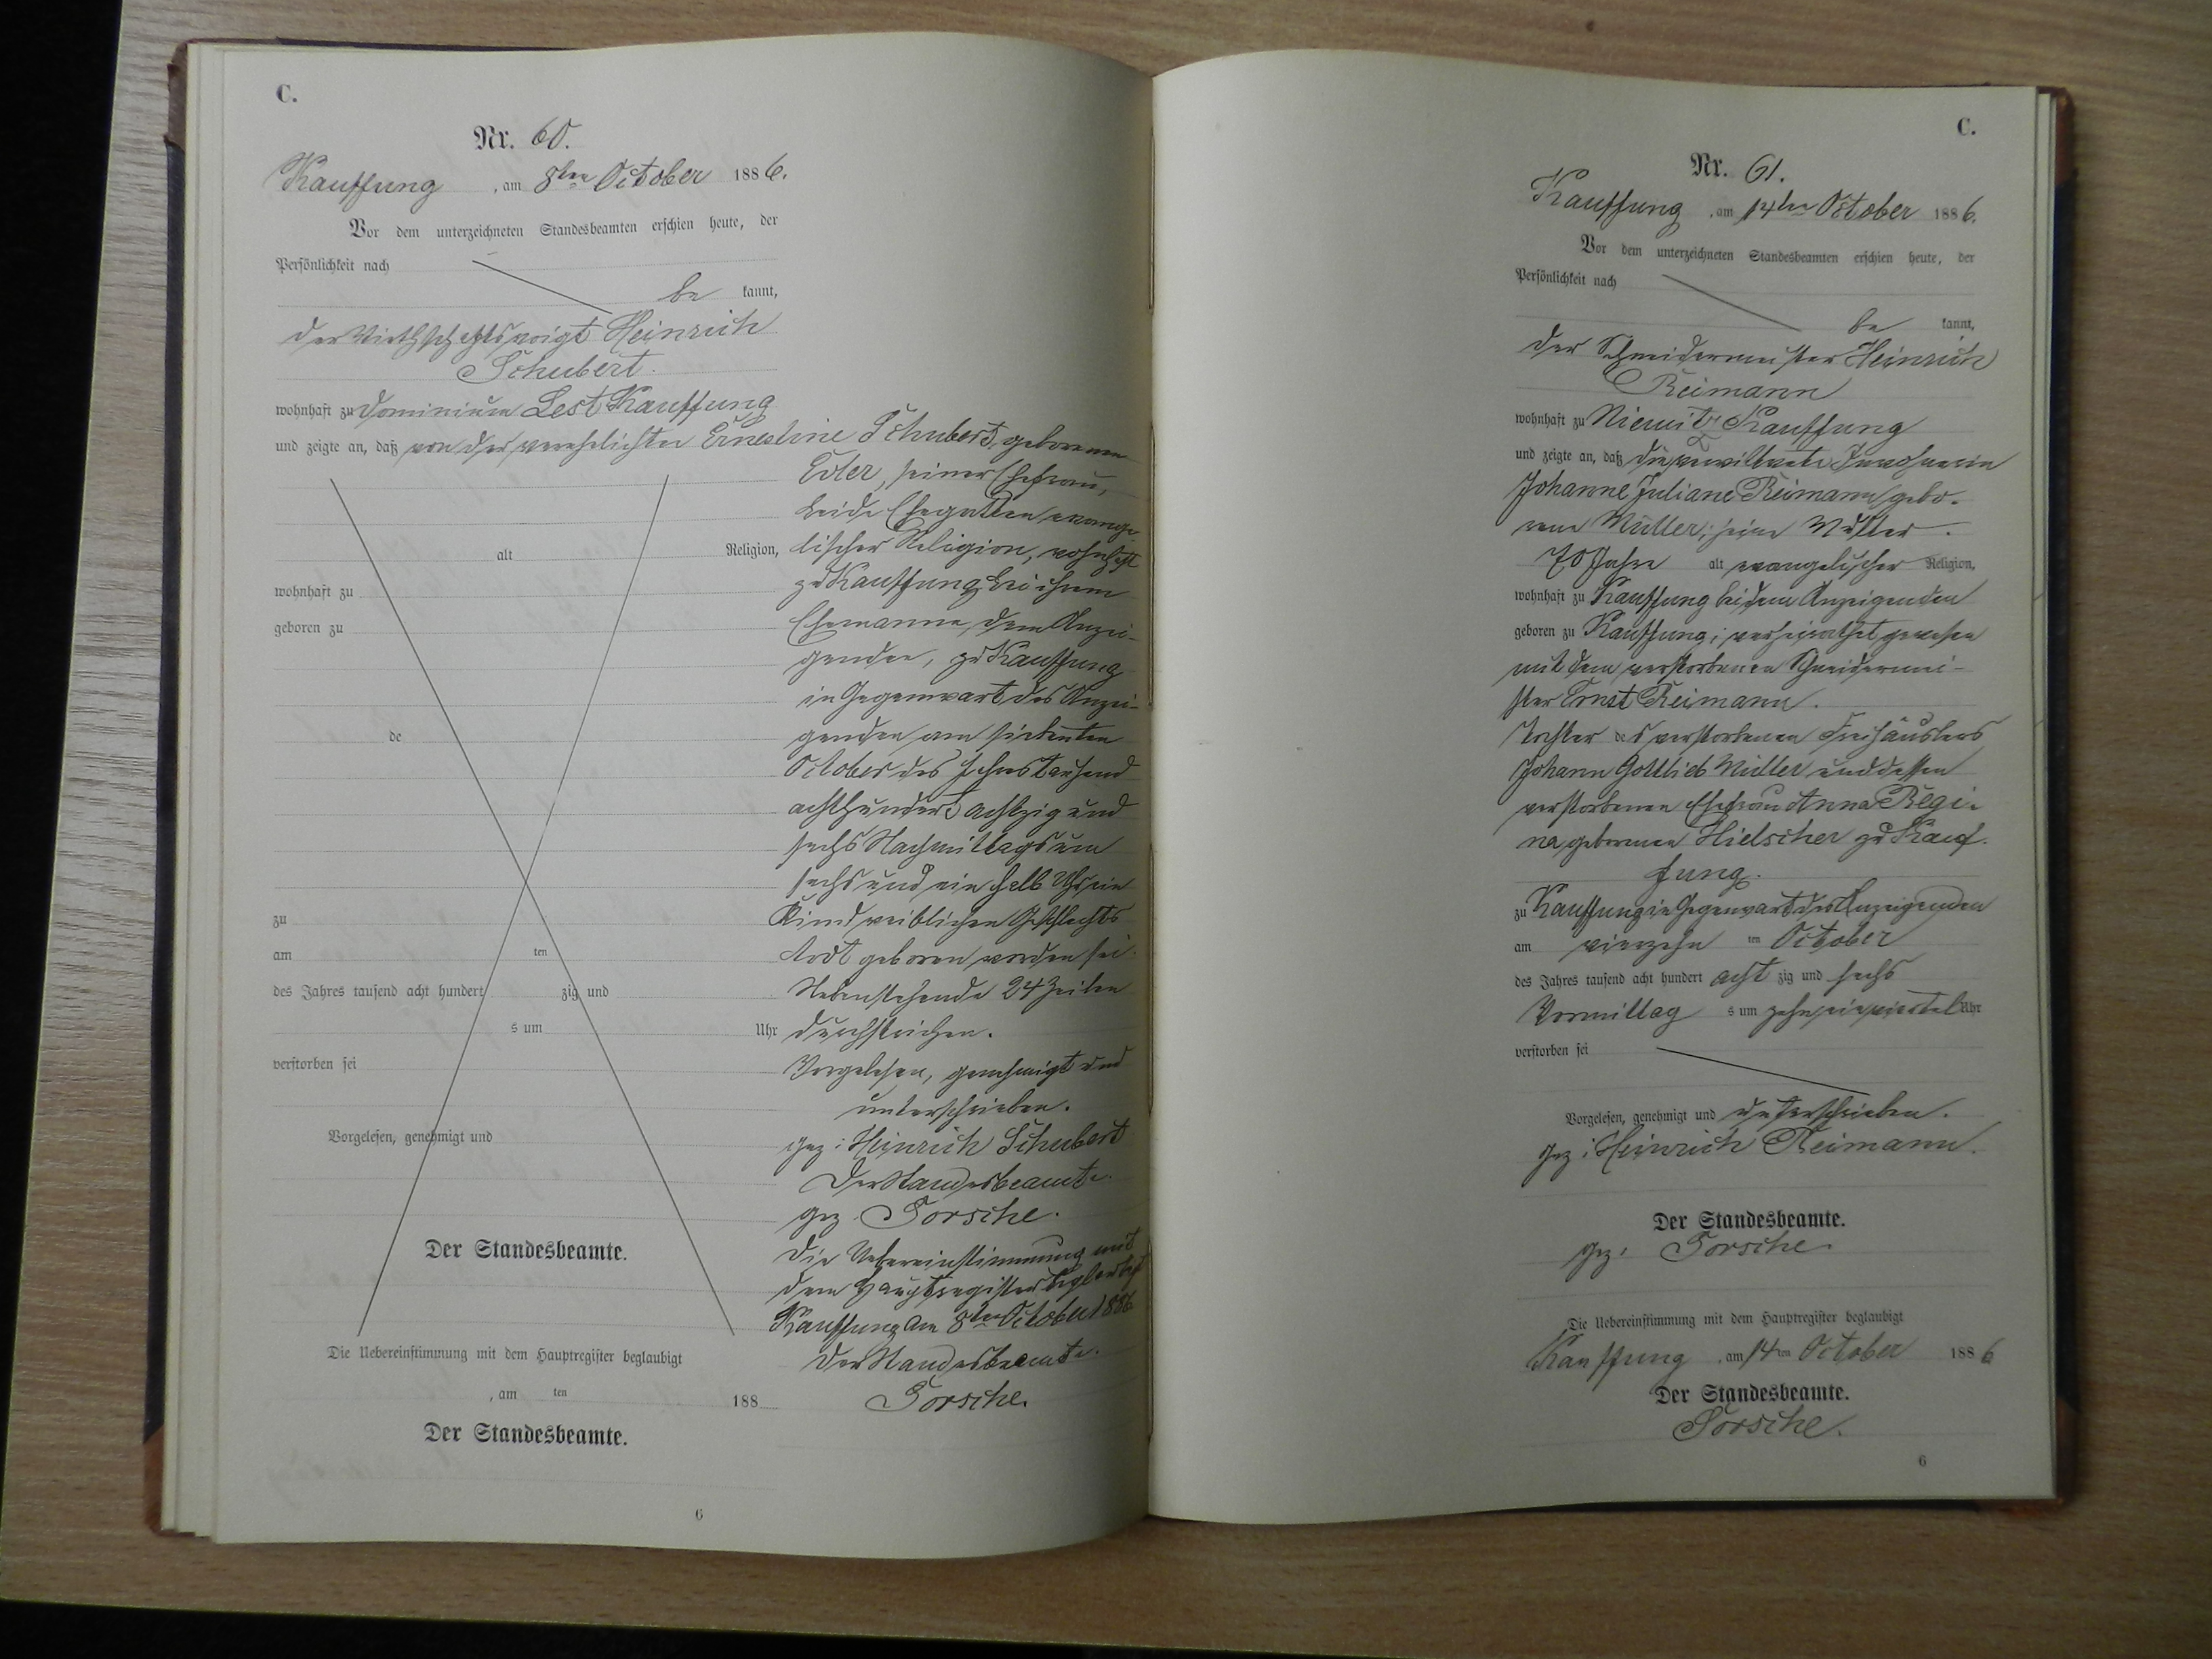 C.
Nr. 60.
Kauffung, am 8ten October 1886.
Vor dem unterzeichneten Standesbeamten erschien heute, der
Persönlichkeit nach
be kannt,
der Wirthschaftsvoigt Heinrich
Schubert.
wohnhaft zu Dominium Lest Kauffung
und zeigte an, daß von der verehelichten Ernestine Schubert, geborenen
seiner Ehefrau,
beide Ehegatten evange
alt Religion, lischer Religion, wohnhaft
wohnhaft zu zu Kauffung bei ihrem
geboren zu Ehemanne, dem Anzei-
genden, zu Kauffung
in Gegenwart des Anzei-
de genden am siebenten
October des Jahres tausend
achthundert achtzig und
sechs Nachmittags um
sechs und ein halb Uhr ein
zu Kind weiblichen Geschlechts
am ten todt geboren worden sei.
des Jahres tausend acht hundert zig und Nebenstehende 24 Zeilen
s um Uhr durchstrichen.
verstorben sei Vorgelesen, genehmigt und
unterschrieben.
Vorgelesen, genehmigt und gez: Heinrich Schubert
Der Standesbeamte.
gez. Torsche.
Der Standesbeamte. Die Uebereinstimmung mit
dem Hauptregister beglaubigt
Kauffung am 8ten October 1886
Die Uebereinstimmung mit dem Hauptregister beglaubigt Der Standesbeamte.
, am ten 188 Torsche.
Der Standesbeamte.
6
C.
Nr. 61.
Kauffung, am 14ten October 1886.
Vor dem unterzeichneten Standesbeamten erschien heute, der
Persönlichkeit nach
be kannt,
der Schneidermeister Heinrich
Reimann
wohnhaft zu Niemitz Kauffung
und zeigte an, daß die verwittwete Inwohnerin
Johanne Juliane Reimann gebo-
rene Müller, seine Mutter.
70 Jahre alt evangelischer Religion,
wohnhaft zu Kauffung bei dem Anzeigenden
geboren zu Kauffung; verheirathet gewesen
mit dem verstorbenen Schneidermei-
ster Ernst Reimann.
Tochter des verstorbenen Freihäuslers
Johann Gottlieb Müller und dessen
verstorbenen Ehefrau Anna Regi-
na geborenen Hielscher zu Kauf-
fung.
zu Kauffung in Gegenwart des Anzeigenden
am vierzehn ten October
des Jahres tausend acht hundert acht zig und sechs
Vormittag s um zehn ein viertel Uhr
verstorben sei
Vorgelesen, genehmigt und unterschrieben.
gez: Heinrich Reimann.
Der Standesbeamte.
gez: Torsche.
Die Uebereinstimmung mit dem Hauptregister beglaubigt
Kauffung, am 14ten October 1886
Der Standesbeamte.
Torsche.
6